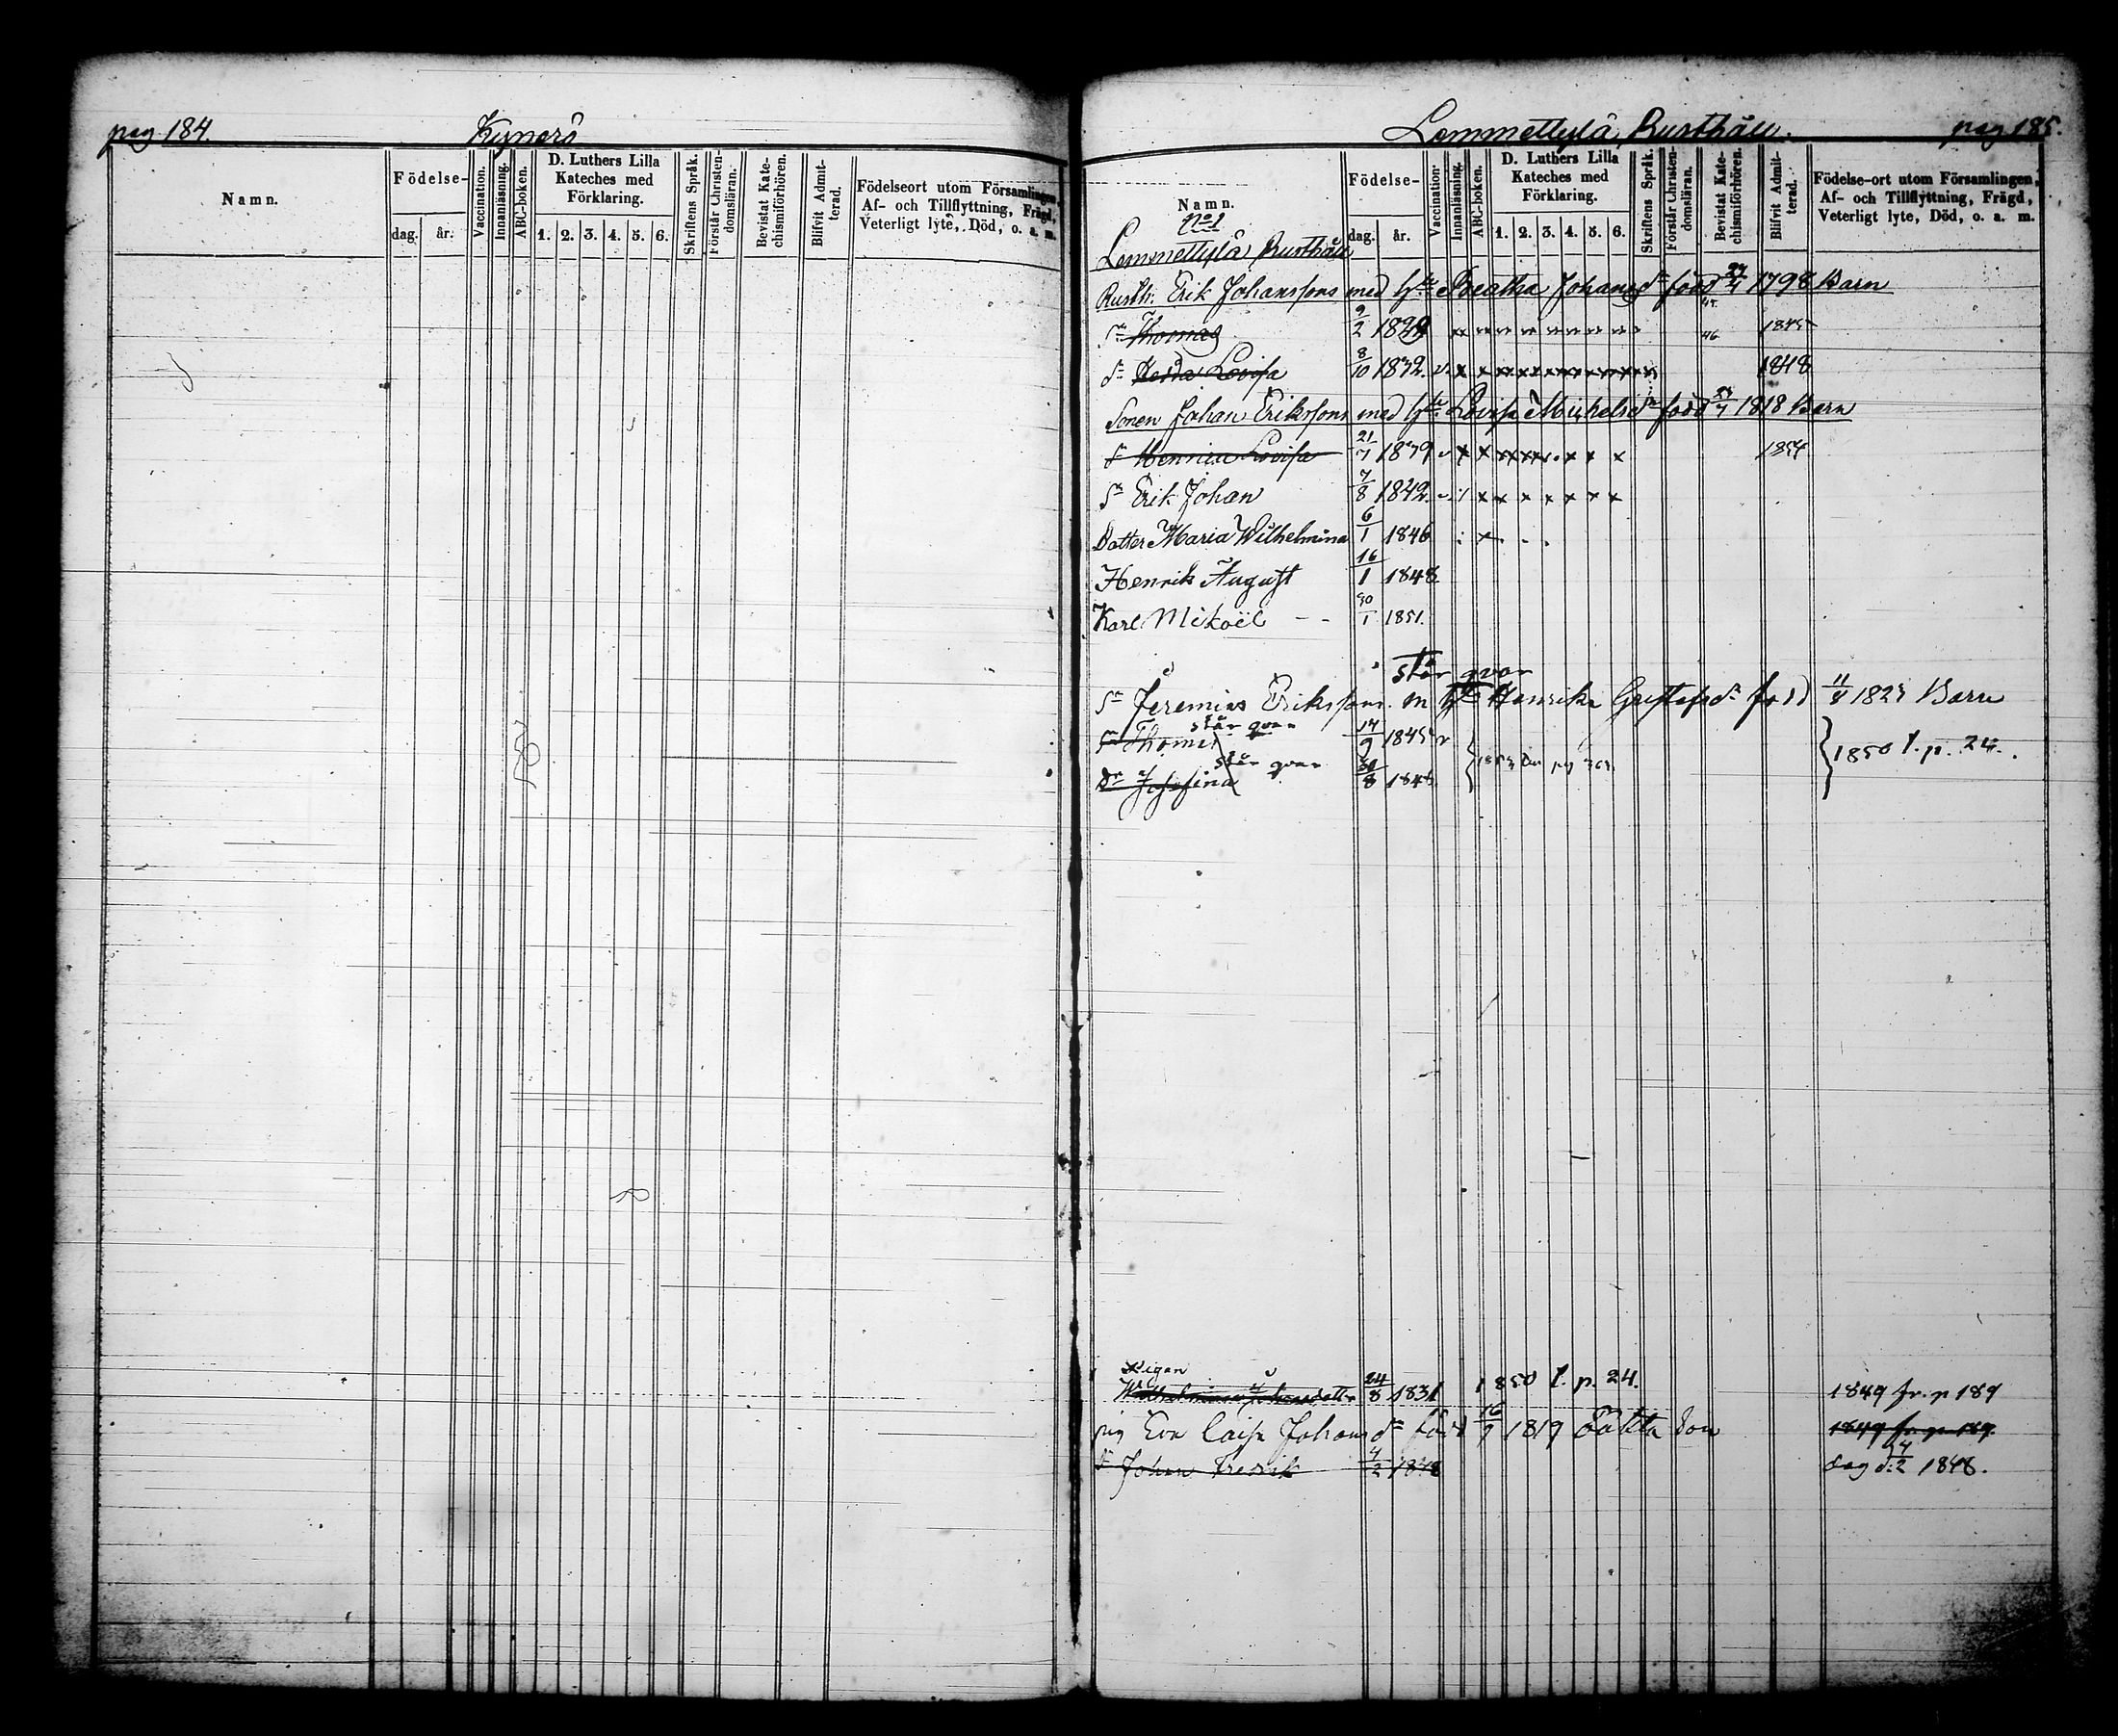 pag 184.
Kynerö
Namn.
Födelse-
dag.
år.
Vaccination.
Innanläsning.
ABC-boken.
D. Luthers Lilla
Kateches med
Förklaring.
1. 2. 3. 4. 5. 6.
Skriftens Språk.
Förstår Christen-
domsläran.
Bevistat Kate-
chismiförhören.
Blifvit Admit-
terad.
Födelseort utom Församlingen,
Af- och Tillflyttning, Frägd,
Veterligt lyte, Död, o. a. m.
Lemmettylä, Rusthåll.
pag 185.
Namn.
Födelse-
dag.
år.
Vaccination.
Innanläsning.
ABC-boken.
D. Luthers Lilla
Kateches med
Förklaring.
1. 2. 3. 4. 5. 6.
Skriftens Språk.
Förstår Christen-
domsläran.
Bevistat Kate-
chismiförhören.
Blifvit Admit-
terad.
Födelse-ort utom Församlingen,
Af- och Tillflyttning, Frägd,
Veterligt lyte, Död, o. a. m.
No 1
Lemmettylä Rusthåll
Rusth: Erik Johanssons med Hu Beatha Johansdr född 27/4 1798 Barn
Sn Thomas 9/2 1829 46 1845
dr Hedda Lovisa 8/10 1832. 1848
Sonen Johan Erikssons med Hu Lovisa Michelsdr född 1818 Barn
dr Henrica Lovisa 21/7 1839 1854
Sn Erik Johan 7/8 1842
Dotter Maria Wilhelmina 6/1 1846
Henrik August 16/1 1848
Karl Mikaël - - 30/1 1851.
står qvar
Sn Jeremias Erikssons m Hu Henrika Gustafsdr född 11/8 1823 Barn
Sn Thomas står qvar 17/9 1845 v
Dr Josefina står qvar 30/8 1848
1850 t. p. 24.
Pigan
Wilhelmina Johansdotter 24/8 1831 1850 t. p. 24. 1849 fr. p 189
pig Eva Caisa Johansdr född 16/9 1819 oäkta son 1849 fr p 189.
Sn Johan Fredrik 4/2 1848 dag d: 4/2 1848.